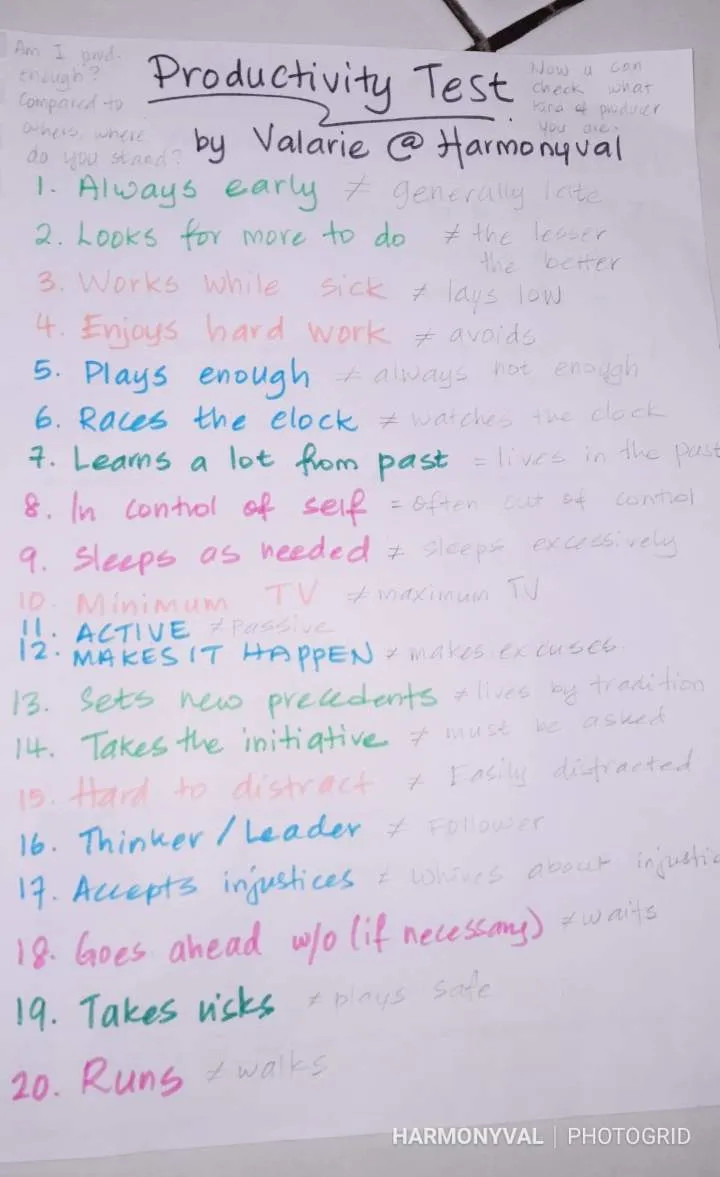 Am I prod.
enough?
Compared to
others, where
do you stand?
Productivity Test
Now u can
check what
kind of producer
you are.
by Valarie @ Harmonyval
1. Always early ≠ generally late
2. Looks for more to do ≠ the lesser
the better
3. Works while sick ≠ lays low
4. Enjoys hard work ≠ avoids
5. Plays enough ≠ always not enough
6. Races the clock ≠ watches the clock
7. Learns a lot from past = lives in the past
8. In control of self = often out of control
9. Sleeps as needed ≠ sleeps excessively
10. Minimum TV ≠ maximum TV
11. ACTIVE ≠ Passive
12. MAKES IT HAPPEN ≠ makes excuses
13. Sets new precedents ≠ lives by tradition
14. Takes the initiative ≠ must be asked
15. Hard to distract ≠ Easily distracted
16. Thinker / Leader ≠ Follower
17. Accepts injustices ≠ whines about injustic
18. Goes ahead w/o (if necessary) ≠ waits
19. Takes risks ≠ plays safe
20. Runs ≠ walks
HARMONYVAL | PHOTOGRID